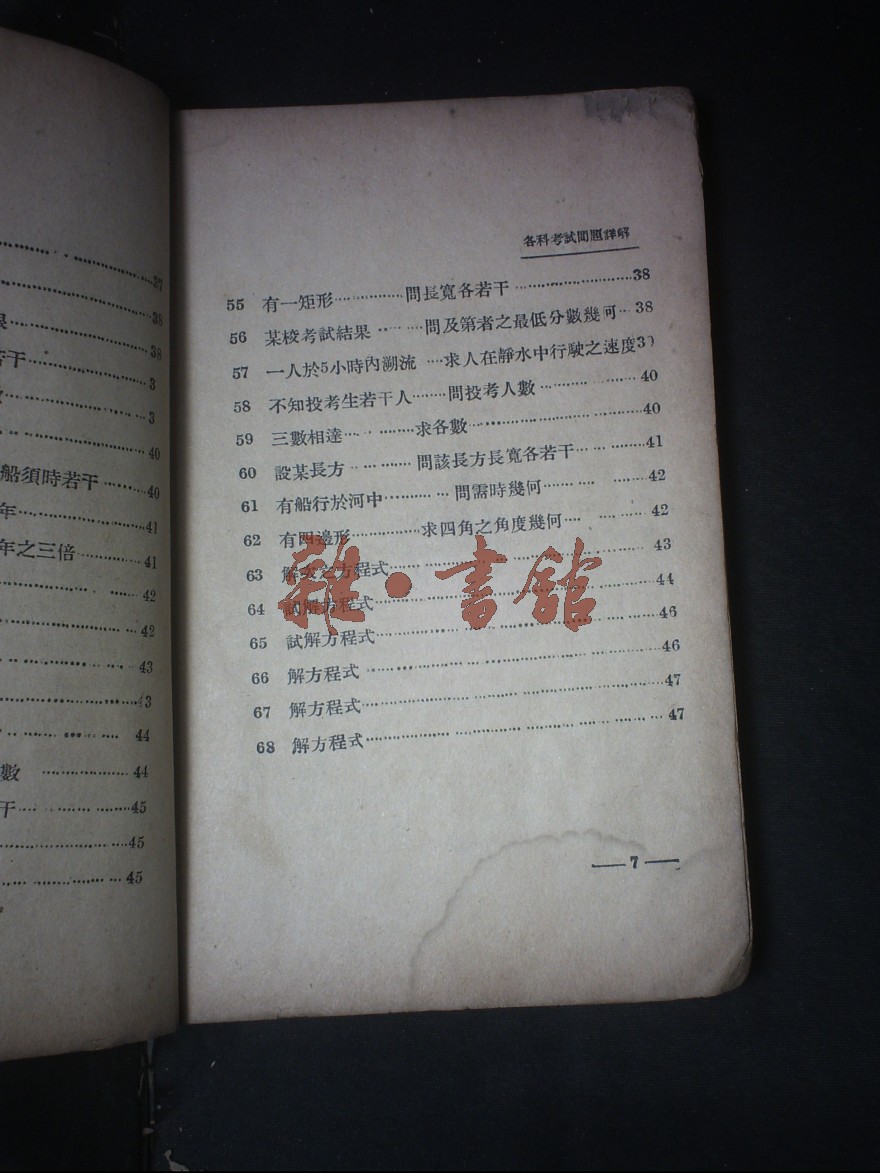 37
38
果 38
若干 3
3
40
船須時若干 40
年 41
年之三倍 41
42
42
43
43
44
數 44
干 45
45
45
各科考試問題詳解
55 有一矩形 問長寬各若干 38
56 某校考試結果 問及第者之最低分數幾何 38
57 一人於5小時內溯流 求人在靜水中行駛之速度
58 不知投考生若干人 問投考人數 40
59 三數相連 求各數 40
60 設某長方 問該長方長寬各若干 41
61 有船行於河中 問需時幾何 42
62 有四邊形 求四角之角度幾何 42
63 解次之方程式 43
64 試解方程式 44
65 試解方程式 46
66 解方程式 46
67 解方程式 47
68 解方程式 47
7
雜·書館